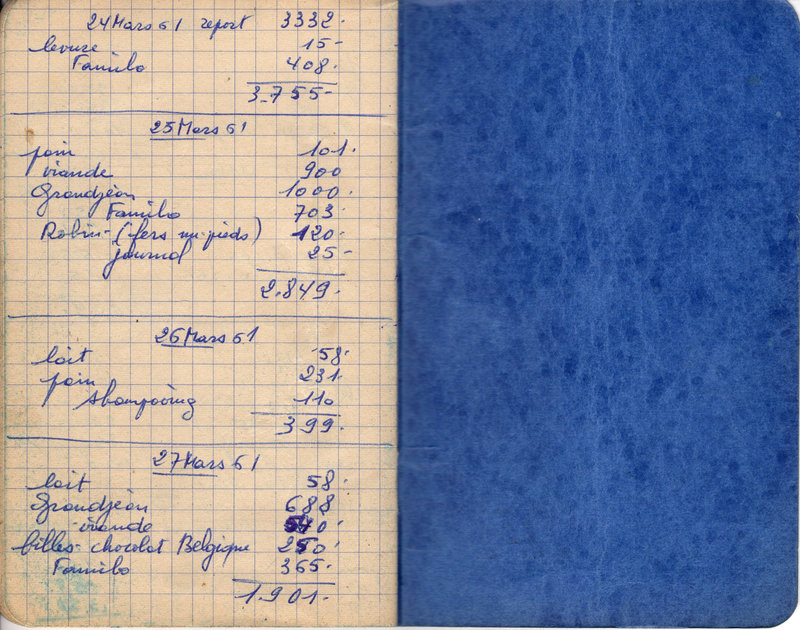 24 Mars 61 report 3332.
levure 15-
Familo 408.
3.755-
25 Mars 61
pain 101.
viande 900
Grandjean 1000.
Familo 703.
Robin-(fers nu-pieds) 120-
journal 25-
2.849.
26 Mars 61
lait 58.
pain 231.
shampooing 110
399.
27 Mars 61
lait 58.
Grandjean 688
viande 540
billes-chocolat Belgique 250
Familo 365.
1.901.